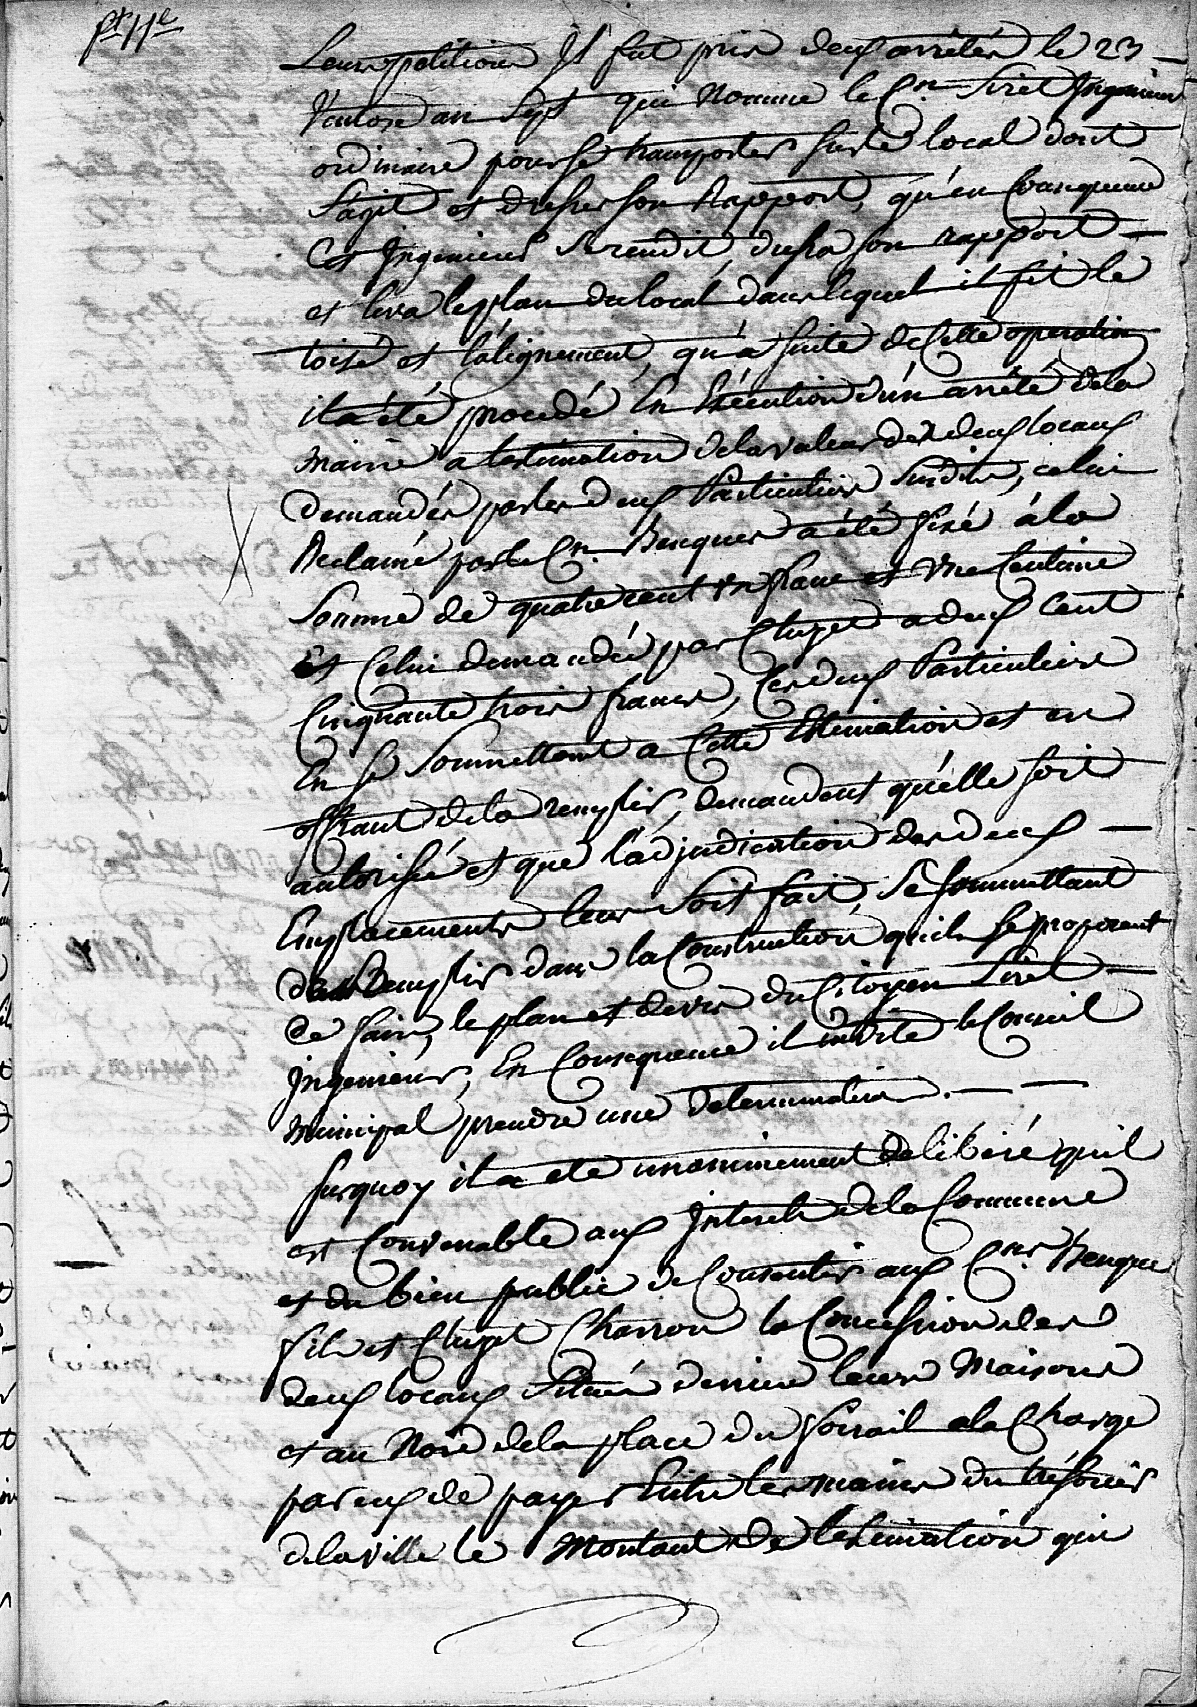 Leurs petitions Il fut pris deux arrêtés le 23
Ventose an Sept qui Nomme le Cen. Siret Ingenieur
ordinaire pour se transporter sur le local dont
s'agit et dresser son Rapport, qu'en Consequence
Cet Ingenieur Se rendit, dressa son rapport
et leva le plan du local dans lequel il fit le
toisé et l'alignement, qu'a suite de Cette operation
il a été procedé En Exécution d'un arrêté de la
mairie a l'estimation de la valeur des deux locaux
demandés par les deux Particuliers Susdits, celui
Reclamé par le Cn. Benques a été fixé à la
Somme de quatre cent un franc et Une Centime
Et Celui demandé par Cluzet a deux Cent
Cinquante trois francs, Ces deux Particuliers
En Se Soumettant a Cette Estimation et en
offrant de la remplir, demandent qu'elle soit
autorisée et que l'adjudication des deux
Emplacements leur Soit fait, Se soummettant
de Remplir dans la Construction qu'ils Se proposent
de faire, le plan et devis du Citoyen Siret
Ingenieur, En Consequence il invite le Conseil
Municipal prendre une determination.
Surquoy il a eté unanimement delibéré qu'il
est Convenable aux Interets de la Commune
et du bien public de Consentir aux Cens. Benque
fils et Cluzet Charron la Concession des
deux locaux Situés derriere leurs Maisons
et au Nord de la place du foirail a la Charge
par eux de payer Entre les mains du trésorier
de la ville le Montant de l'estimation qui